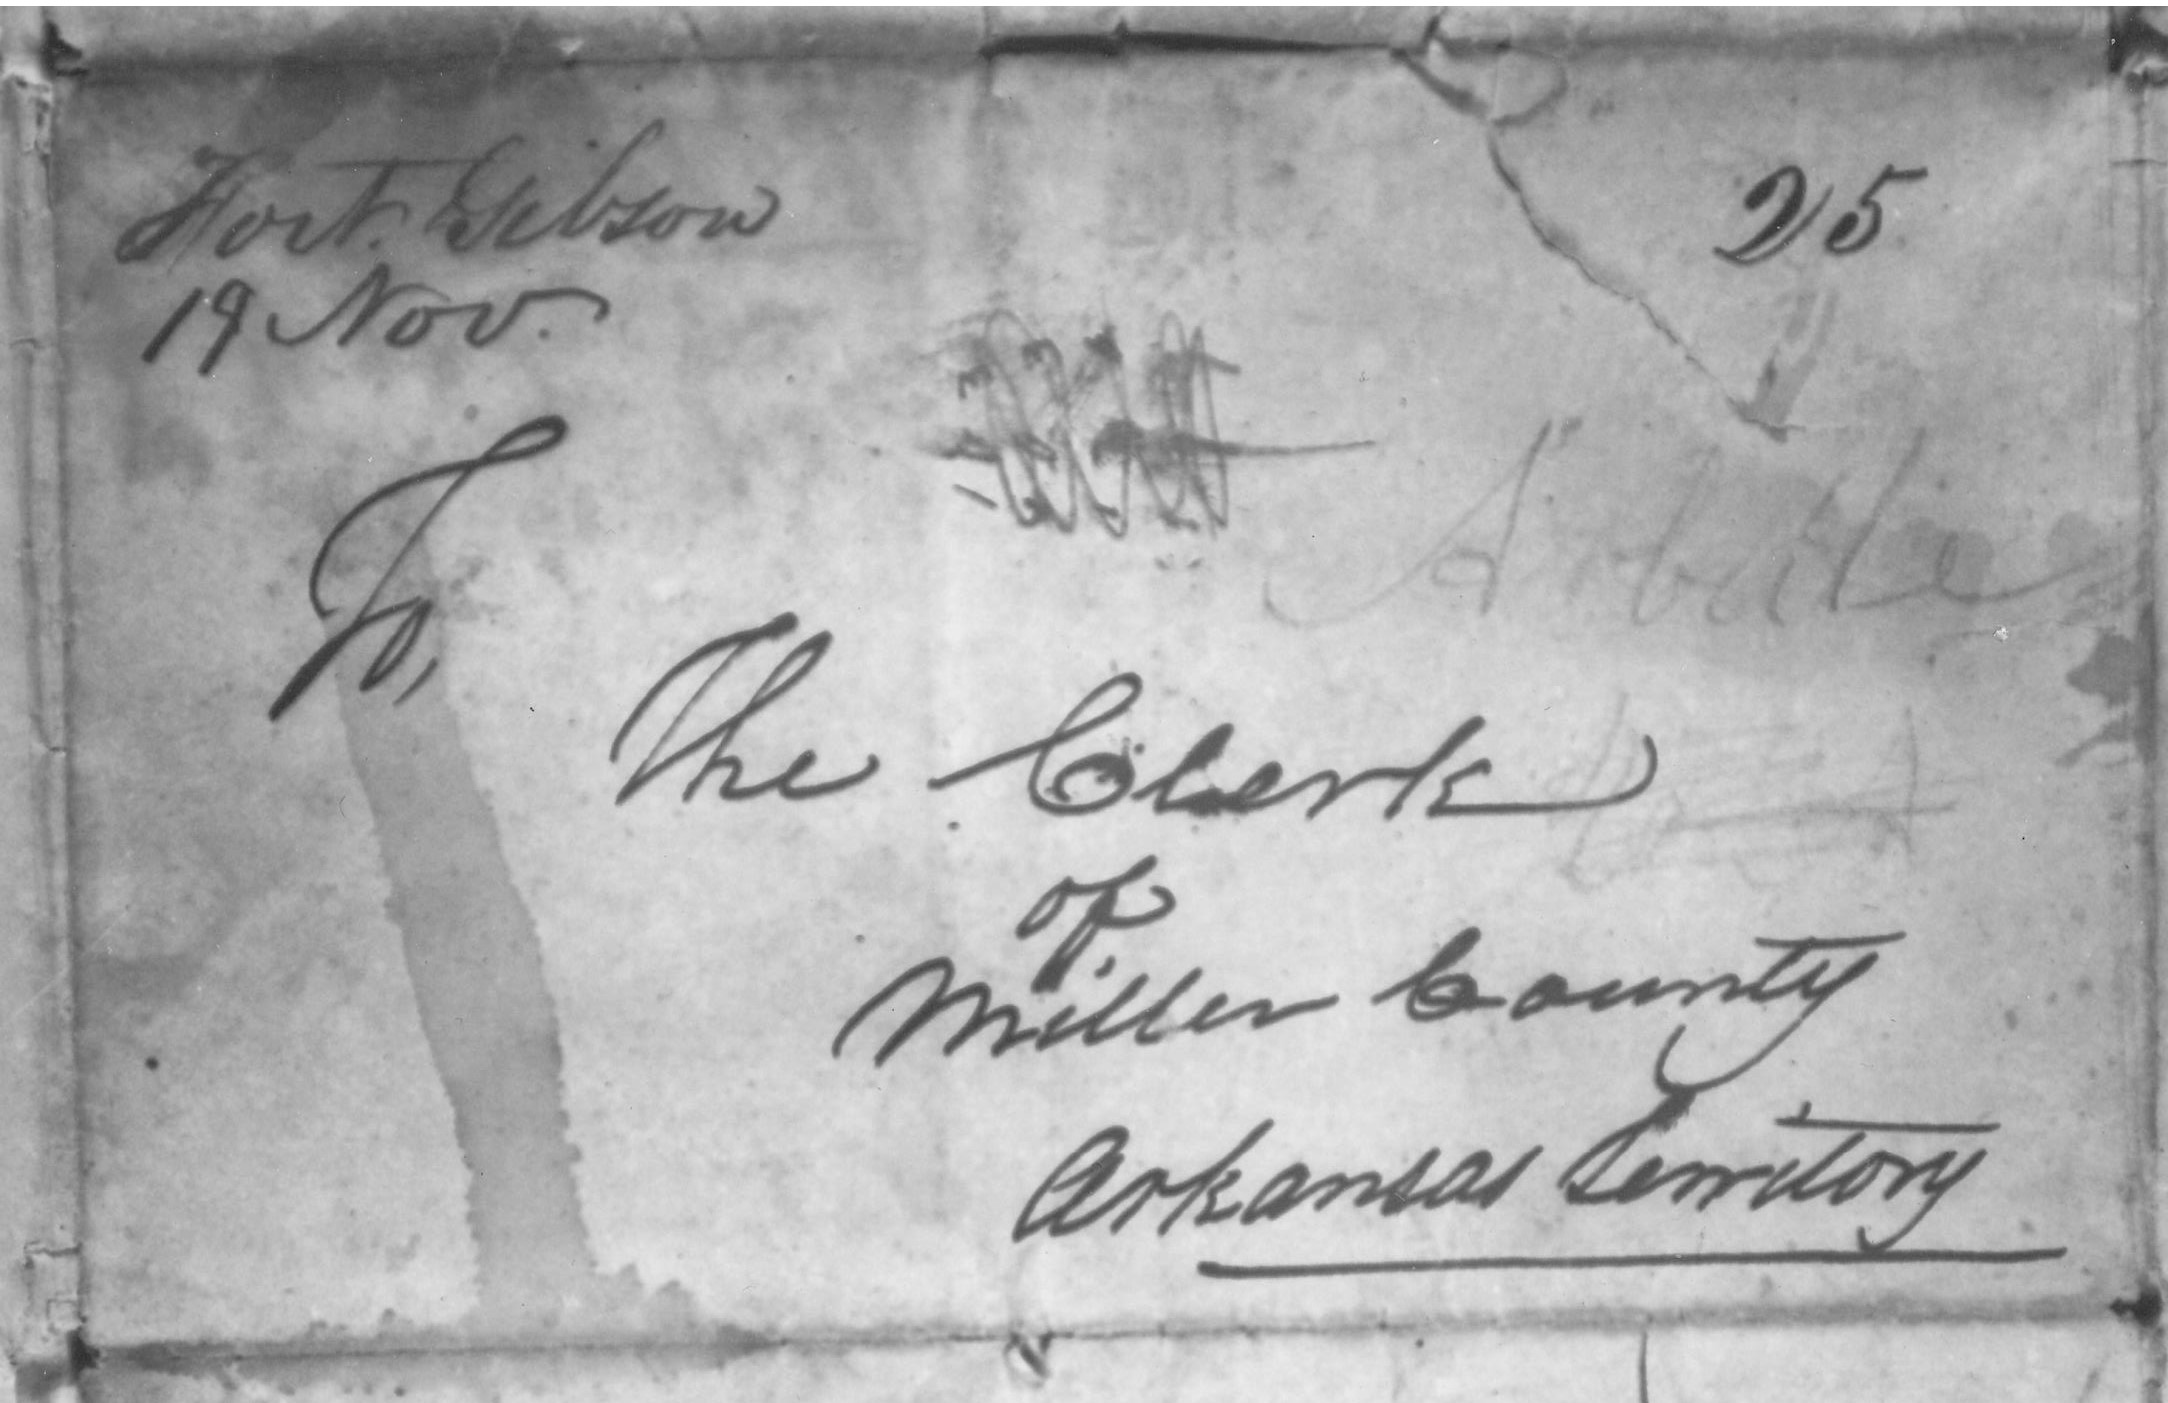 Fort. Gibson
19 Nov.
25
To,
The Clerk
of
Miller County
Arkansas Territory